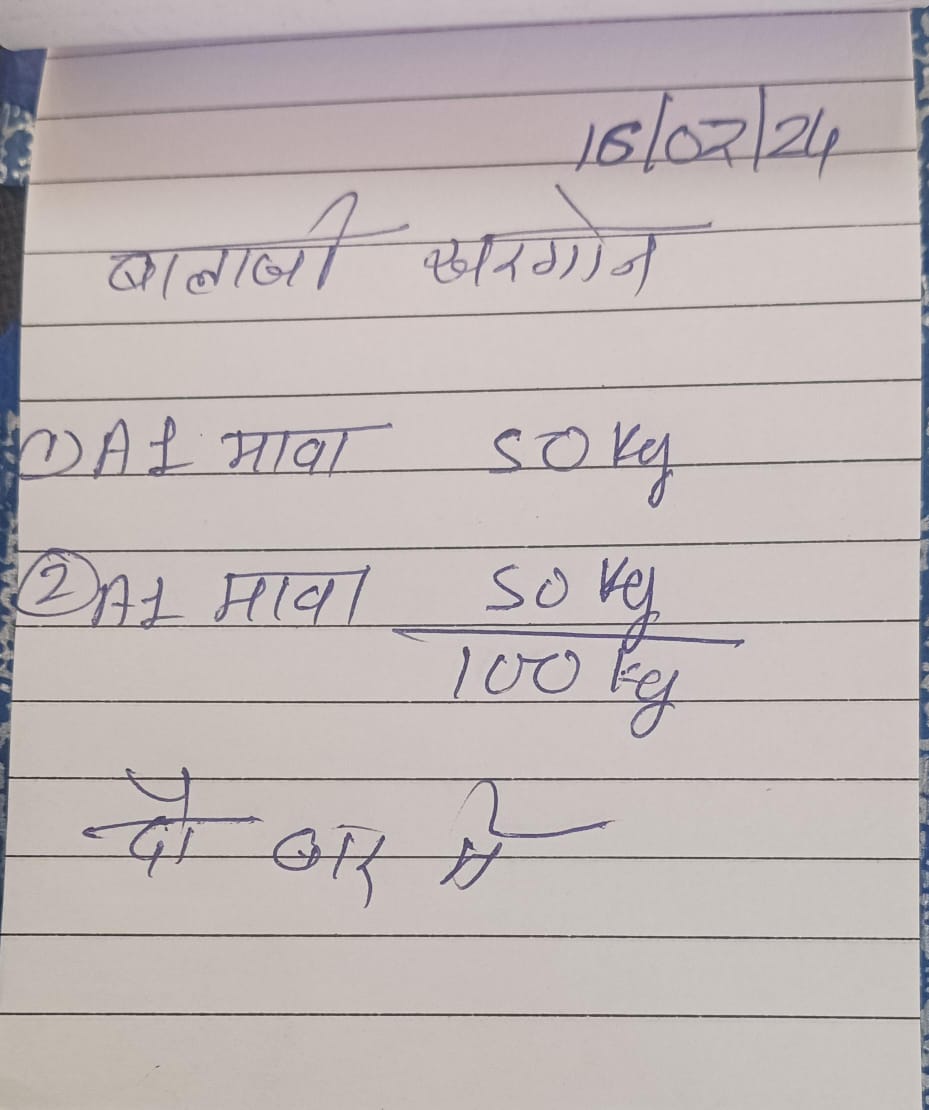 16/02/24
बालाजी खरगोन
1) A1 मावा 50 Kg
2 A1 मावा 50 Kg
100 Kg
दो बार में